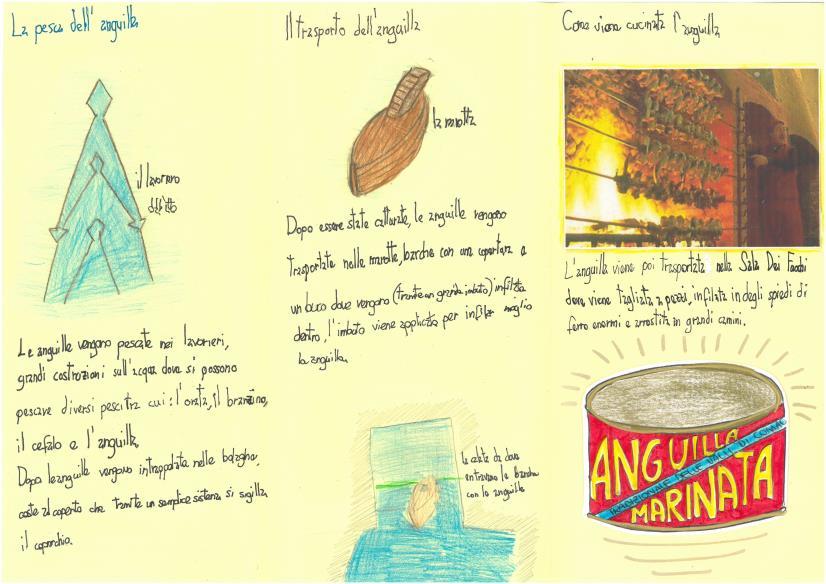 La pesca dell'anguilla
il lavoriero
detto
Le anguille vengono pescate nei lavorieri,
grandi costrozioni sull'acqua dove si possono
pescare diversi pesci tra cui: l'orata, il branzino,
il cefalo e l'anguilla.
Dopo le anguille vengono intrappolate nelle bolaghe,
ceste al coperto che tramite un semplice sistema si sigilla
il coperchio.
Il trasporto dell'anguilla
la marotta
Dopo essere state catturate, le anguille vengono
trasportate nelle marotte, barche con una copertura e
un buco dove vengono (tramite un grande imbuto) infilate
dentro, l'imbuto viene applicato per infilar meglio
la anguilla.
la calata da dove
entravano le barche
con le anguille
Come viene cucinata l'anguilla
L'anguilla viene poi trasportata nella Sala Dei Fuochi
dove viene tagliata a pezzi, infilata in degli spiedi di
ferro enormi e arrostita in grandi camini.
ANGUILLA
TRADIZIONALE DELLE VALLI DI COMAC
MARINATA